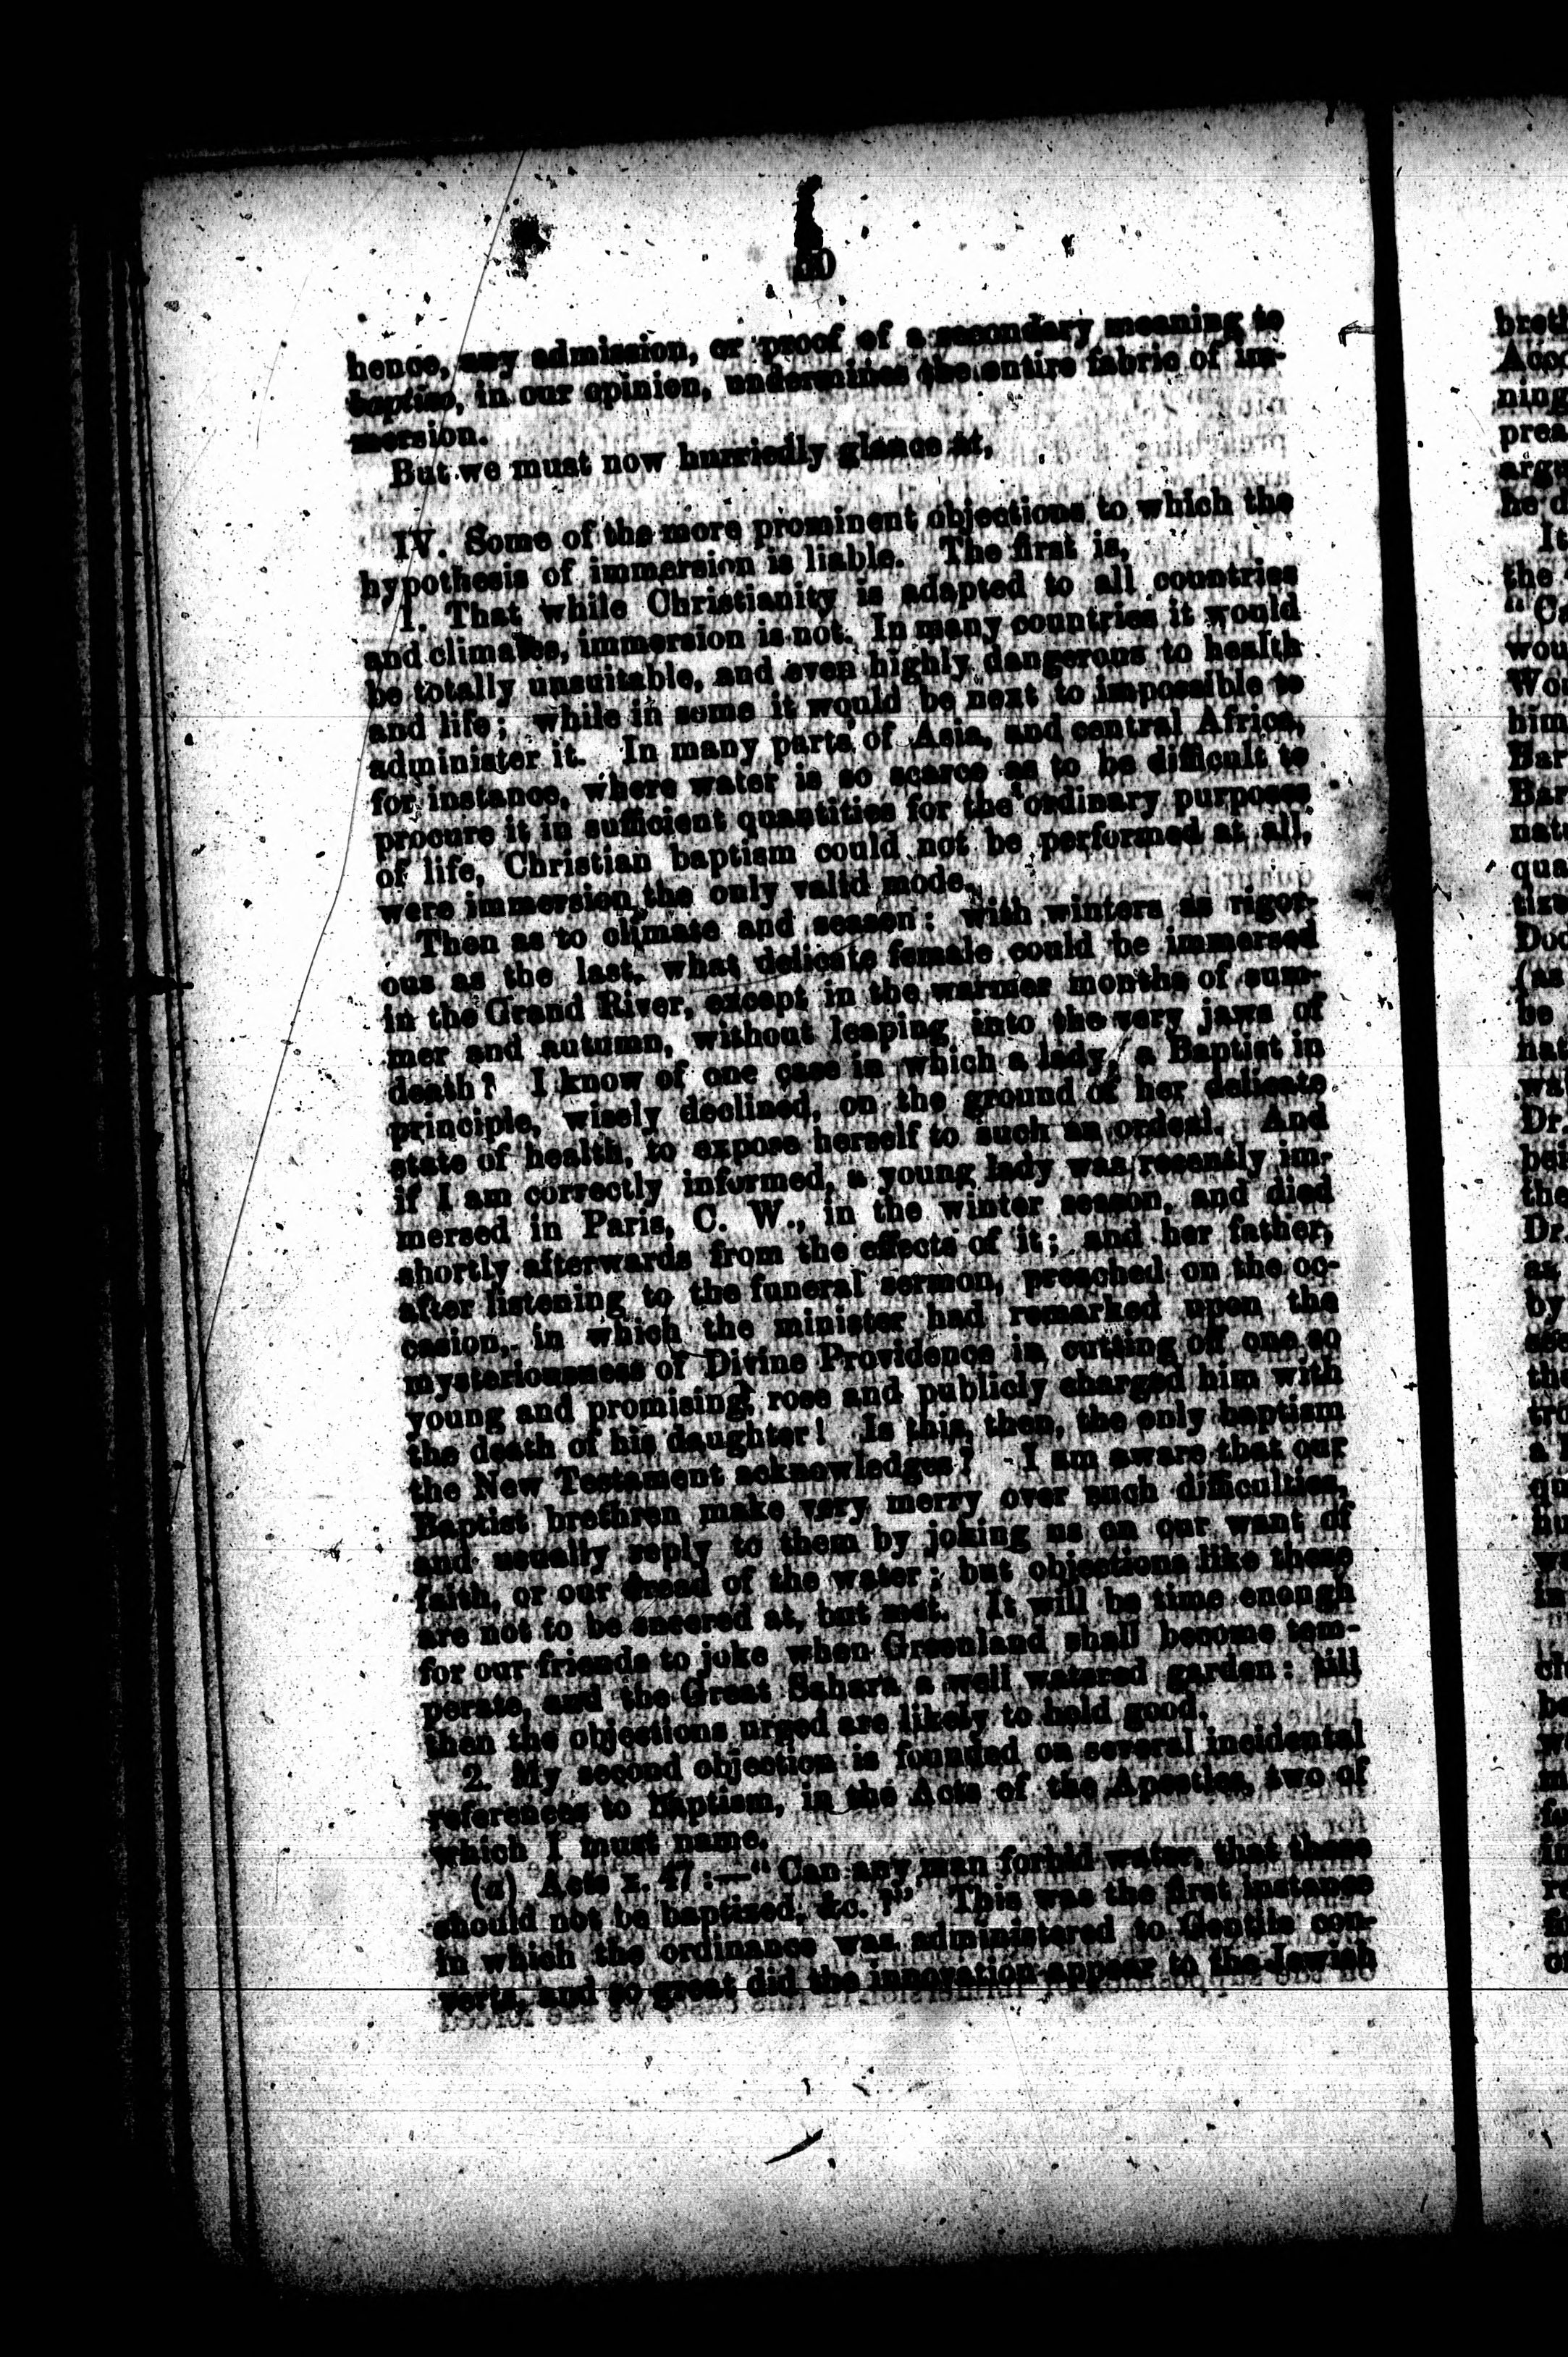 hence, any admission, or proof of a secondary meaning to
baptizo, in our opinion, undermines the entire fabric of im-
mersion.
But we must now hurriedly glance at,
IV. Some of the more prominent objections to which the
hypothesis of immersion is liable. The first is,
1. That while Christianity is adapted to all countries
and climates, immersion is not. In many countries it would
be totally unsuitable, and even highly dangerous to health
and life; while in some it would be next to impossible to
administer it. In many parts of Asia, and central Africa,
for instance, where water is so scarce as to be difficult to
procure it in sufficient quantities for the ordinary purposes
of life, Christian baptism could not be performed at all,
were immersion the only valid mode.
Then as to climate and season: with winters as rigor-
ous as the last, what delicate female could be immersed
in the Grand River, except in the warmer months of sum-
mer and autumn, without leaping into the very jaws of
death? I know of one case in which a lady, a Baptist in
principle, wisely declined, on the ground of her delicate
state of health, to expose herself to such an ordeal. And
if I am correctly informed, a young lady was recently im-
mersed in Paris, C. W., in the winter season, and died
shortly afterwards from the effects of it; and her father,
after listening to the funeral sermon, preached on the oc-
casion, in which the minister had remarked upon the
mysteriousness of Divine Providence in cutting off one so
young and promising, rose and publicly charged him with
the death of his daughter! Is this, then, the only baptism
the New Testament acknowledges? I am aware that our
Baptist brethren make very merry over such difficulties,
and usually reply to them by joking us on our want of
faith, or our dread of the water; but objections like these
are not to be sneered at, but met. It will be time enough
for our friends to joke when Greenland shall become tem-
perate, and the Great Sahara a well watered garden: till
then the objections urged are likely to hold good.
2. My second objection is founded on several incidental
references to Baptism, in the Acts of the Apostles, two of
which I must name.
(a) Acts x. 47:—"Can any man forbid water, that these
should not be baptized, &c.?" This was the first instance
in which the ordinance was administered to Gentile con-
verts, and so great did the innovation appear to the Jewish